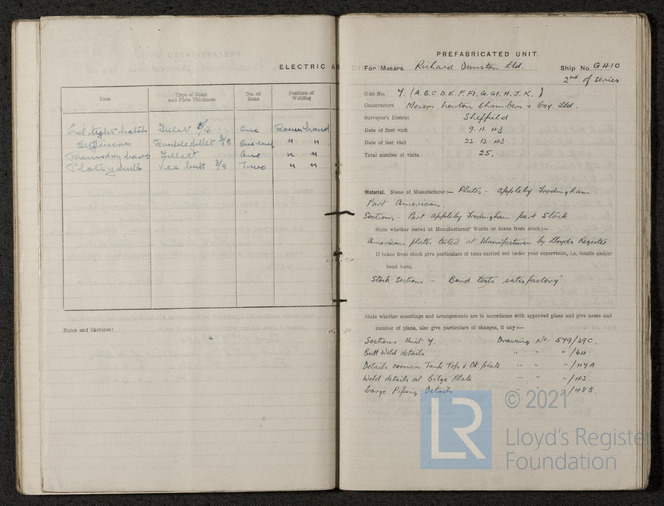 ELECTRIC
Item
Type of Joint and Plate Thickness
No. of Runs
Position of Welding
Fillet 5/16 One Downhand
Stiffeners Double fillet 3/8 One each " "
Fillet One " "
Vee butt 3/8 Two " "
Notes and Sketches:
PREFABRICATED UNIT.
For Messrs. Richard Dunston Ltd. Ship No. GH10
2nd of series
Unit No. Y. (A.B.C.D.E.F.F1.G.G1.H.J.K.)
Constructors Newton Chambers & Coy Ltd.
Surveyor's District Sheffield
Date of first visit 9.11.43
Date of last visit 22.12.43
Total number of visits 25.
Material. Name of Manufacturer:— Plates - Appleby Frodingham
Part American.
Sections - Part Appleby Frodingham part Stock
State whether tested at Manufacturers' Works or taken from stock:—
American plates tested at Manufacturer by Lloyds Register
If taken from stock give particulars of tests carried out under your supervision, i.e. tensile and/or
bend tests.
Stock Sections - Bend tests satisfactory
State whether scantlings and arrangements are in accordance with approved plans and give name and
number of plans, also give particulars of changes, if any:—
Sections Unit Y. Drawing No. 549/29C.
Butt Weld details " " "/611
Details corners Tank Top & plate " " "/117A
Weld details at Bilge Plate " " "/112
Large Piping Details "/48B.
© 2021
LR
Lloyd's Register
Foundation